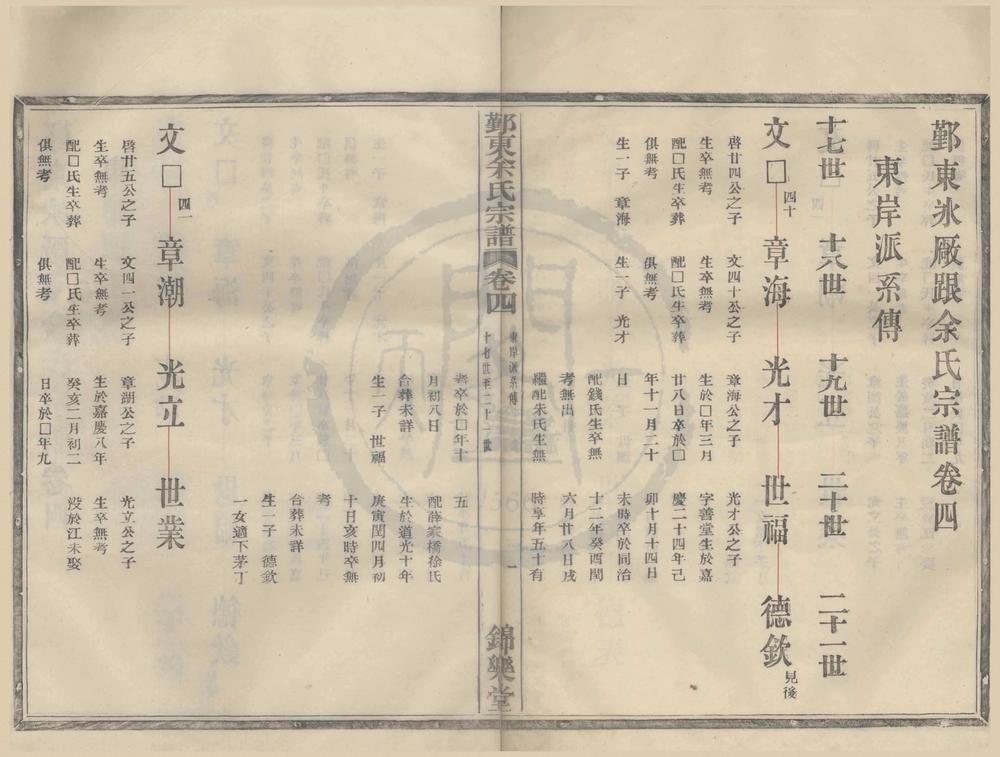 鄞東氷厰跟余氏宗譜卷四
東岸派系傳
十七世 十八世 十九世 二十世 二十一世
文□四十 章海 光才 世福 德欽見後
啓廿四公之子
生卒無考
配□氏生卒葬
俱無考
生一子 章海
文四十公之子
生卒無考
配□氏生卒葬
俱無考
生一子 光才
章海公之子
生於□年三月
廿八日卒於□
年十一月二十
日
配錢氏生卒無
考無出
繼配朱氏生無
考卒於□年十
月初八日
合葬未詳
生一子 世福
光才公之子
字善堂生於嘉
慶二十四年己
卯十月十四日
未時卒於同治
十二年癸酉閏
六月廿八日戌
時享年五十有
五
配薛家橋徐氏
生於道光十年
庚寅閏四月初
十日亥時卒無
考
合葬未詳
生一子 德欽
一女適下茅丁
鄞東余氏宗譜 卷四
東岸派系傳
十七世至二十一世
一
錦樂堂
文□四一 章潮 光立 世業
啓廿五公之子
生卒無考
配□氏生卒葬
俱無考
文四一公之子
生卒無考
配□氏生卒葬
俱無考
章潮公之子
生於嘉慶八年
癸亥二月初二
日卒於□年九
光立公之子
生卒無考
没於江未娶